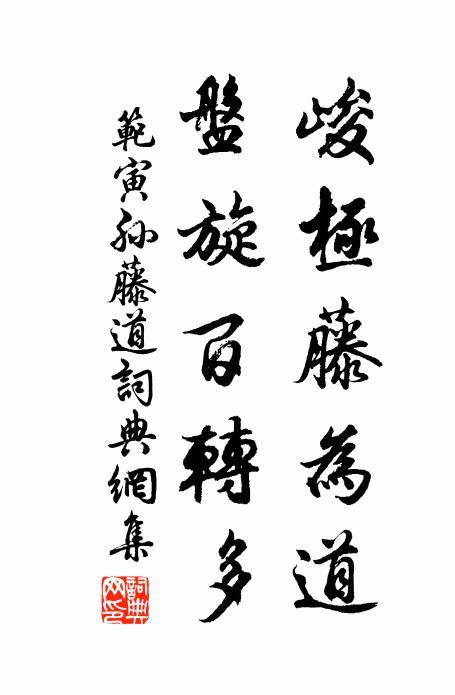 峻極藤為道
盤旋百轉多
範寅孫藤道詞典網集
詞典網印